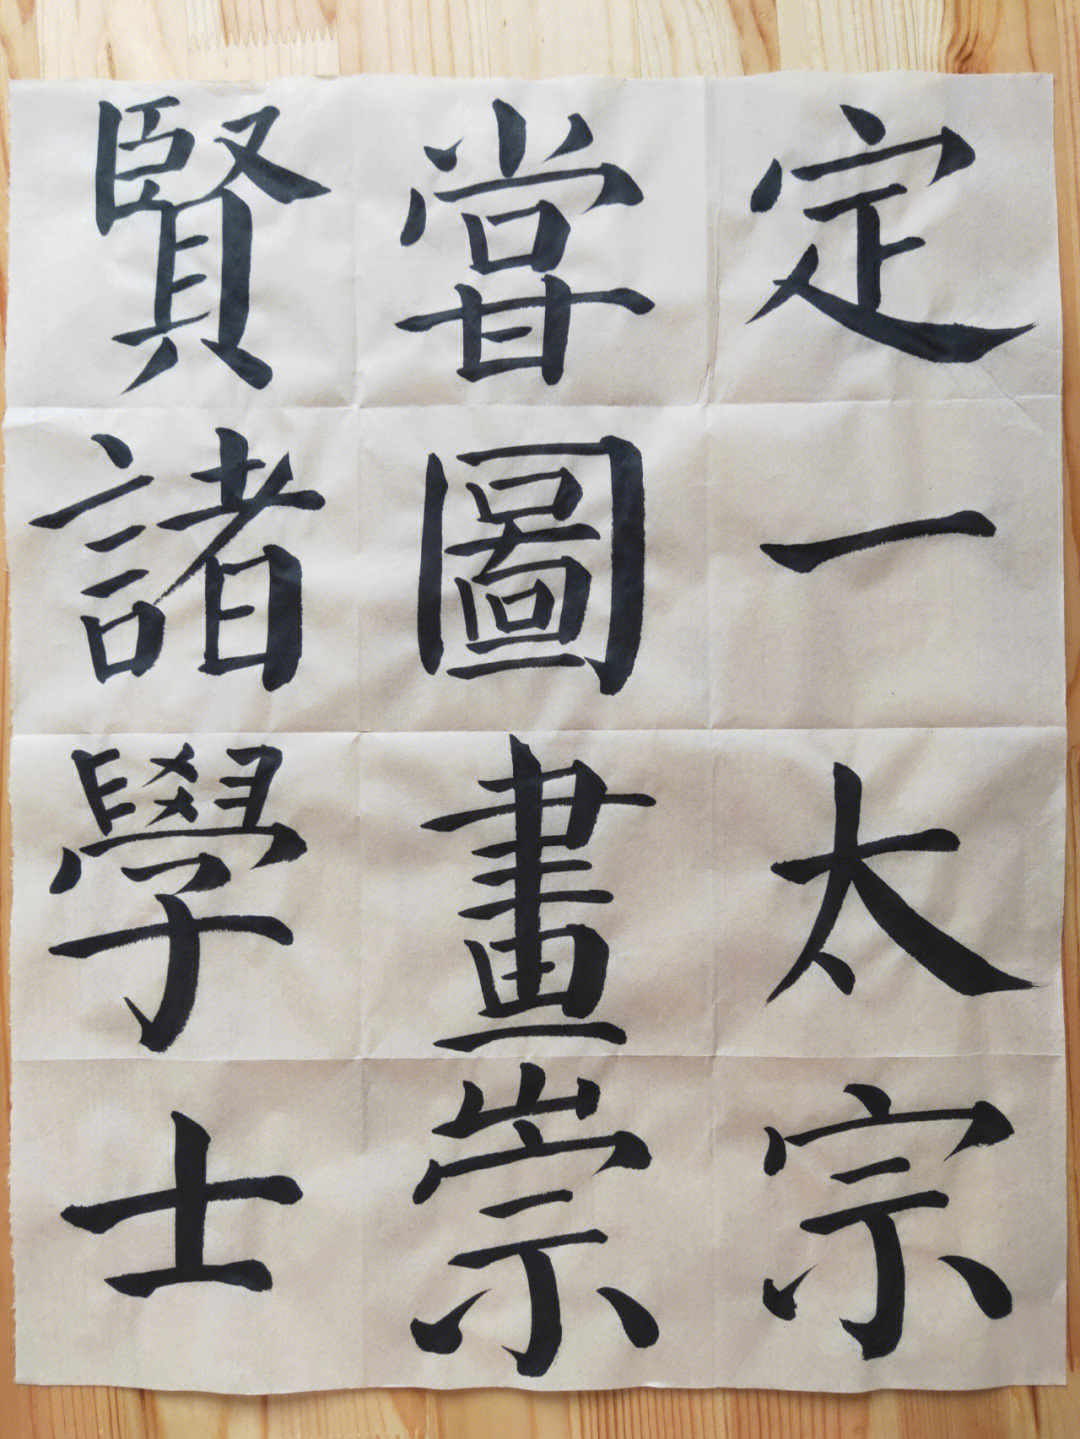 定一太宗
嘗圖畫崇
賢諸學士